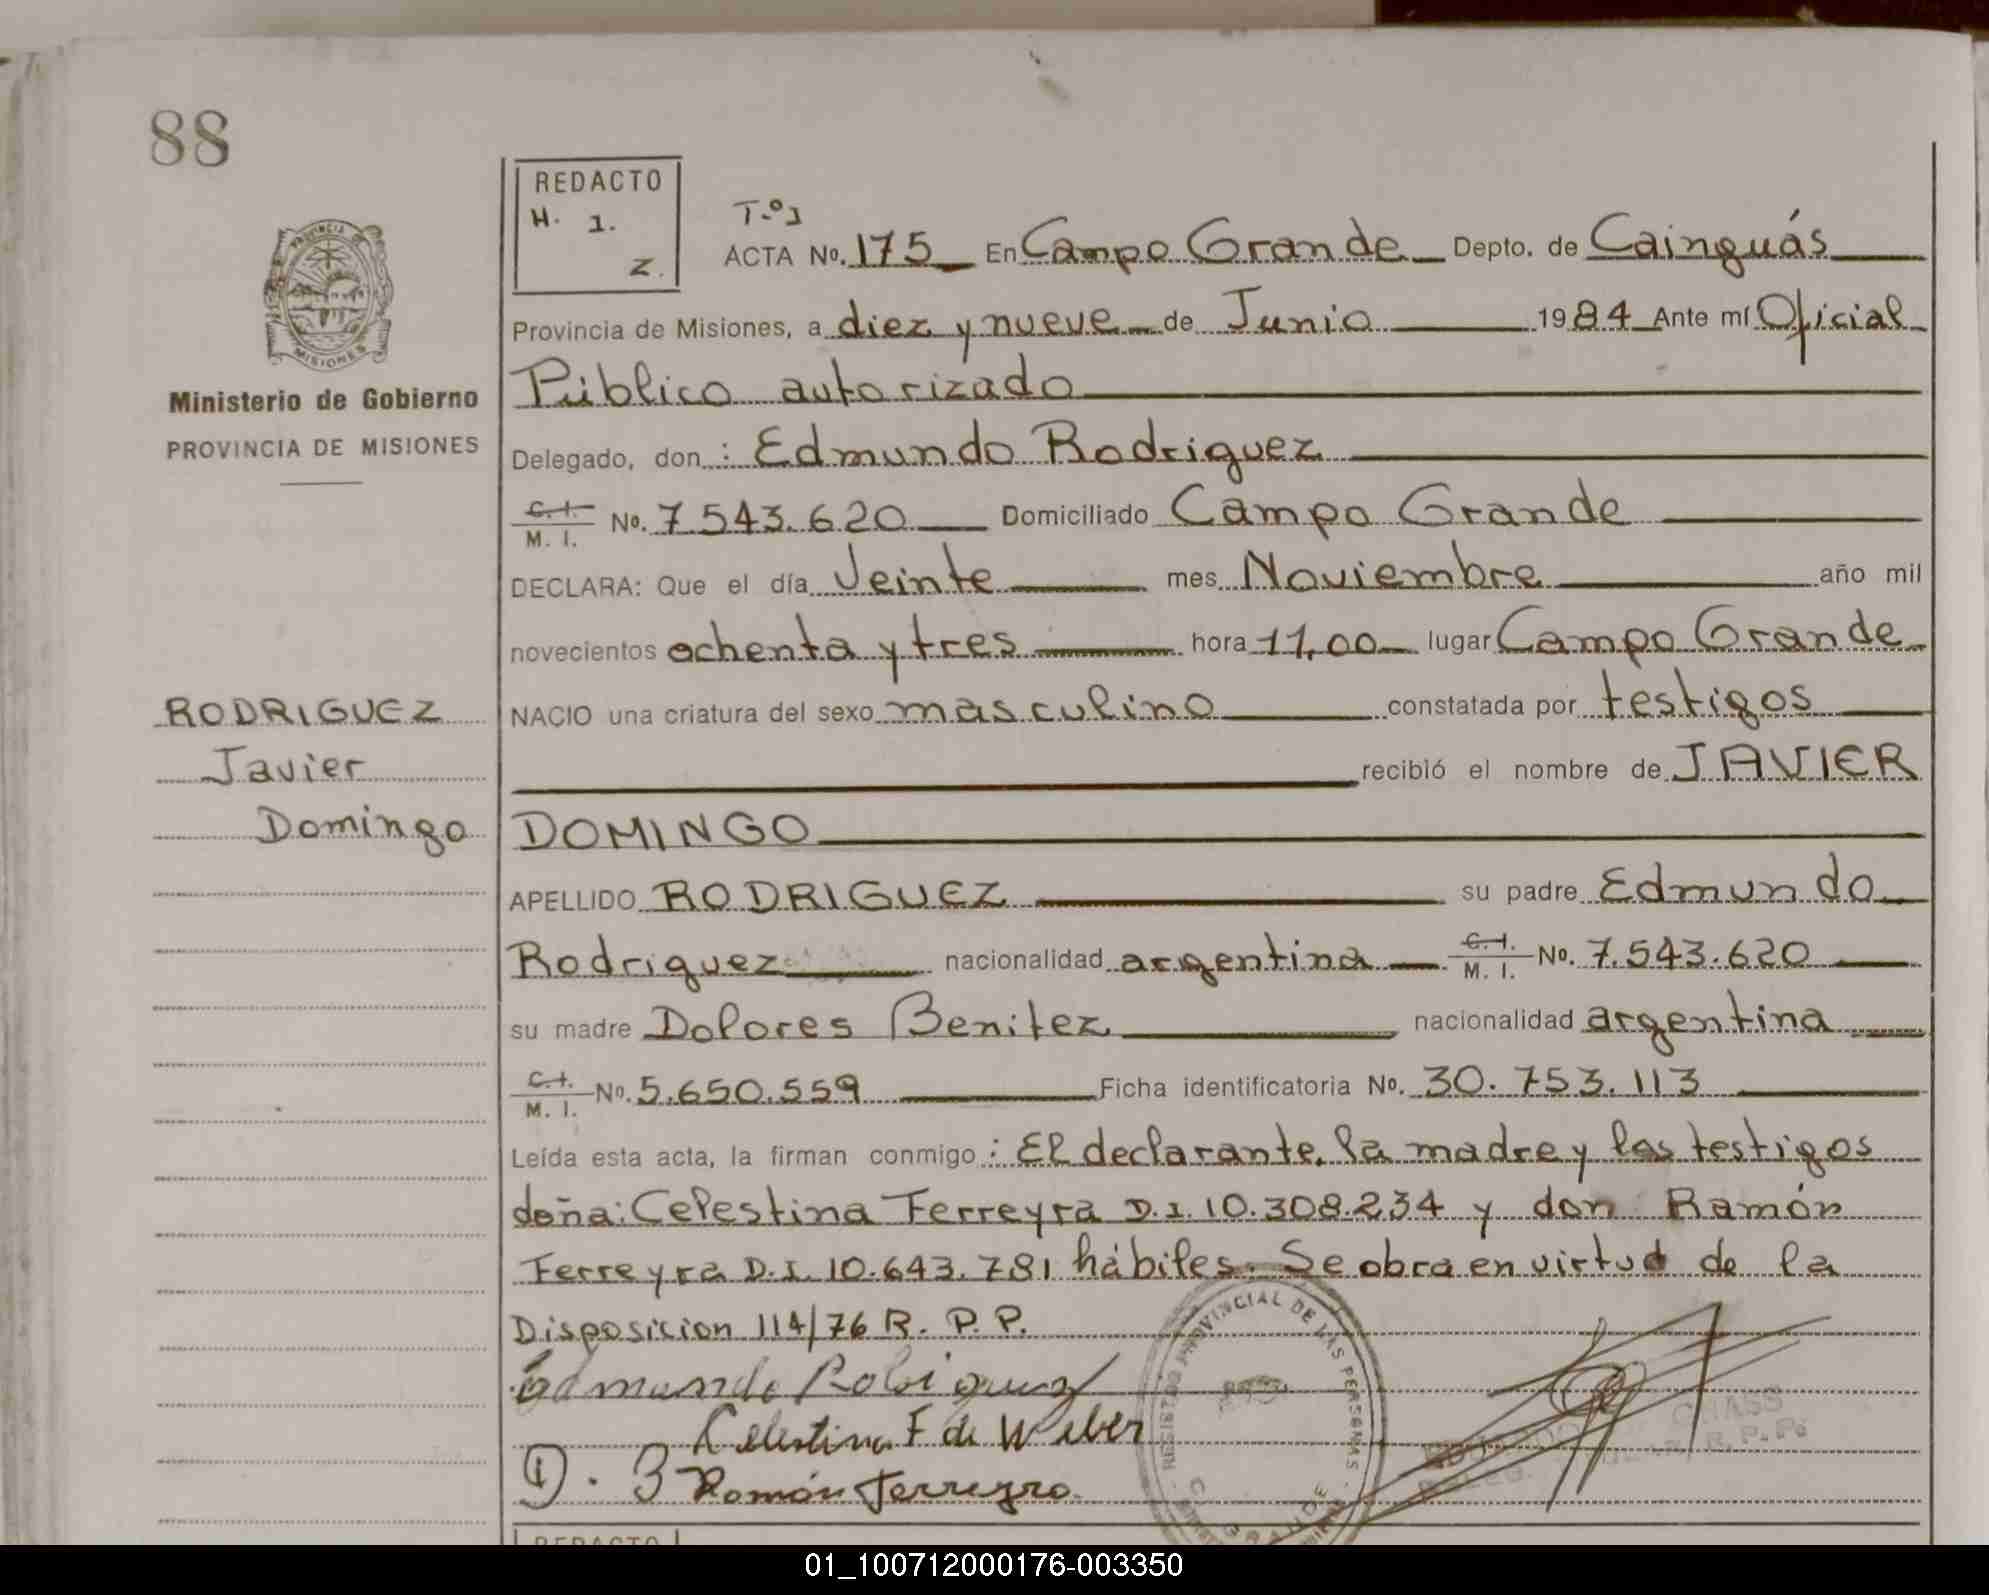 88
REDACTO
H. 1.
Z.
T.º1
ACTA No. 175 En Campo Grande Depto. de Cainguás
PROVINCIA DE
MISIONES
Provincia de Misiones, a diez y nueve de Junio 1984 Ante mí Oficial
Público autorizado
Ministerio de Gobierno
PROVINCIA DE MISIONES
Delegado, don : Edmundo Rodriguez
C. I. M. I. No. 7.543.620 Domiciliado Campo Grande
DECLARA: Que el día Veinte mes Noviembre año mil
novecientos ochenta y tres hora 11,00 lugar Campo Grande
RODRIGUEZ
Javier
Domingo
NACIO una criatura del sexo masculino constatada por testigos
recibió el nombre de JAVIER
DOMINGO
APELLIDO RODRIGUEZ su padre Edmundo
Rodriguez nacionalidad argentina C. I. M. I. No. 7.543.620
su madre Dolores Benitez nacionalidad argentina
C. I. M. I. No. 5.650.559 Ficha identificatoria No. 30.753.113
Leída esta acta, la firman conmigo : El declarante, la madre y los testigos
doña: Celestina Ferreyra D.I. 10.308.234 y don Ramón
Ferreyra D.I. 10.643.781 hábiles. Se obra en virtud de la
Disposicion 114/76 R. P. P.
Edmundo Rodriguez
Celestina F de Weber
D. B Ramón Ferreyra
REGISTRO PROVINCIAL DE LAS PERSONAS
C. GRANDE
R. P. P.
REDACTO
01_100712000176-003350